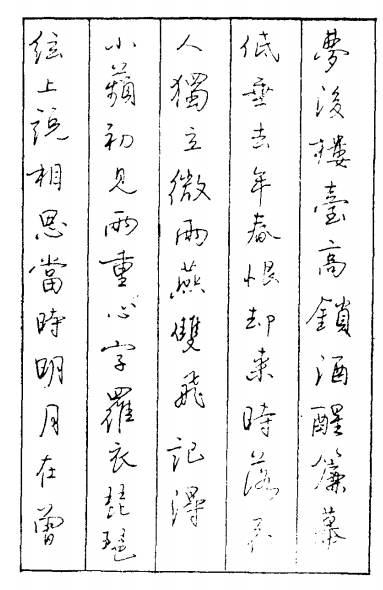 夢後樓臺高鎖酒醒簾幕
低垂去年春恨却來時落花
人獨立微雨燕雙飛記得
小蘋初見兩重心字羅衣琵琶
絃上說相思當時明月在曾